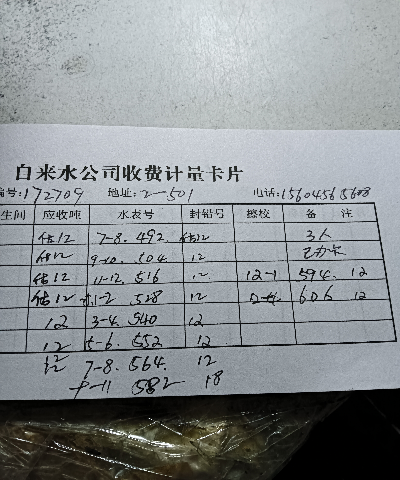 自来水公司收费计量卡片
编号:172709 地址:2-501 电话:15604565688
生间 应收吨 水表号 封铅号 擦校 备 注
估12 7-8. 492. 估12 3人
估12 9-10. 504 12 已办卡
估12 11-12. 516 12 12-1 594. 12
估12 1-2 528 12 606 12
12 3-4. 540 12
12 5-6. 552 12
12 7-8. 564. 12
9-11 582 18